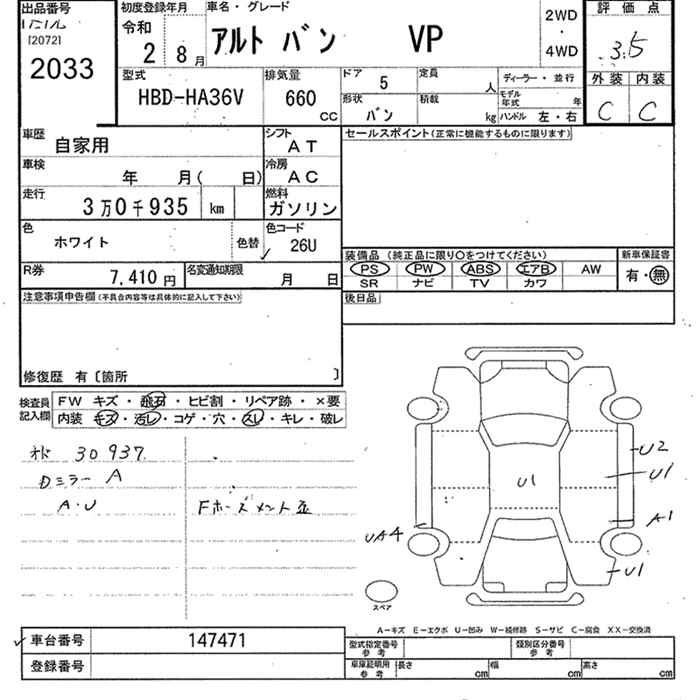 出品番号
[2072]
2033
初度登録年月
令和
2 8月
車名・グレード
アルト バン VP
2WD
・
4WD
評価点
3.5
外装 内装
C C
型式
HBD-HA36V
排気量
660
CC
ドア 5
定員 人
形状 バン
積載 kg
ディーラー・並行
モデル年式 年
ハンドル 左・右
車歴
自家用
シフト
AT
セールスポイント(正常に機能するものに限ります)
車検
年 月( 日)
冷房
AC
走行
3万0千935 km
燃料
ガソリン
色
ホワイト
色替
色コード
26U
装備品(純正品に限り○をつけてください)
PS PW ABS エアB AW
SR ナビ TV カワ
新車保証書
有・無
R券
7,410円
名変通知期限
月 日
後日品
注意事項申告欄(不具合内容等は具体的に記入して下さい)
修復歴 有〔箇所 〕
検査員
記入欄
FW キズ・飛石・ヒビ割・リペア跡・×要
内装・キズ・汚レ・コゲ・穴・スレ・キレ・破レ
30937
ミラー A
A・U
U1
U2
U1
A1
UA4
U1
スペア
A-キズ E-エクボ U-凹み W-補修跡 S-サビ C-腐食 XX-交換済
車台番号
147471
登録番号
型式指定番号
参考
類別区分番号
参考
車庫証明用
参考
長さ cm
幅 cm
高さ cm